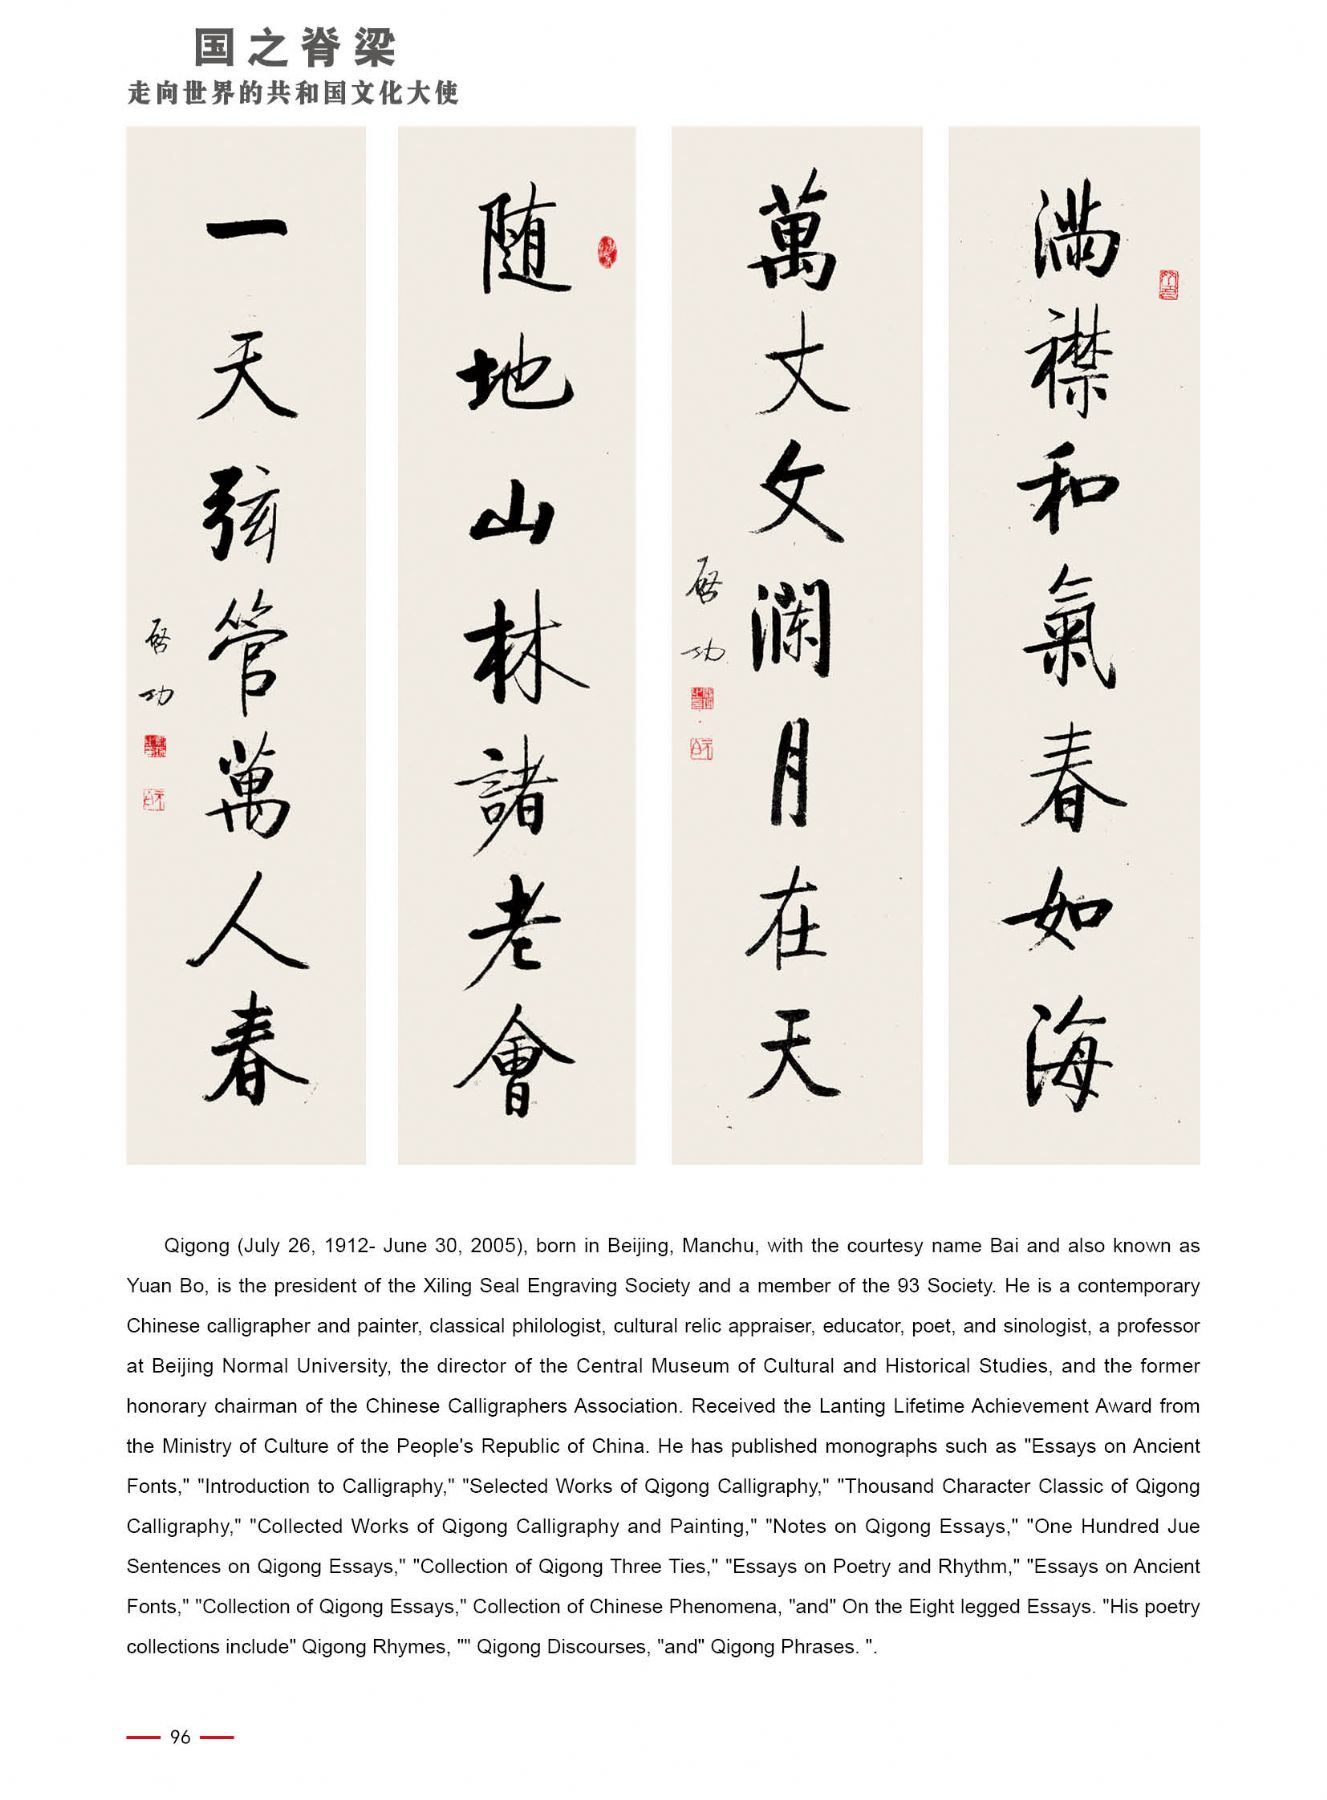 国之脊梁
走向世界的共和国文化大使
满襟和氣春如海
萬丈文澜月在天
启功
随地山林諸老會
一天弦管萬人春
启功
Qigong (July 26, 1912- June 30, 2005), born in Beijing, Manchu, with the courtesy name Bai and also known as
Yuan Bo, is the president of the Xiling Seal Engraving Society and a member of the 93 Society. He is a contemporary
Chinese calligrapher and painter, classical philologist, cultural relic appraiser, educator, poet, and sinologist, a professor
at Beijing Normal University, the director of the Central Museum of Cultural and Historical Studies, and the former
honorary chairman of the Chinese Calligraphers Association. Received the Lanting Lifetime Achievement Award from
the Ministry of Culture of the People's Republic of China. He has published monographs such as "Essays on Ancient
Fonts," "Introduction to Calligraphy," "Selected Works of Qigong Calligraphy," "Thousand Character Classic of Qigong
Calligraphy," "Collected Works of Qigong Calligraphy and Painting," "Notes on Qigong Essays," "One Hundred Jue
Sentences on Qigong Essays," "Collection of Qigong Three Ties," "Essays on Poetry and Rhythm," "Essays on Ancient
Fonts," "Collection of Qigong Essays," Collection of Chinese Phenomena, "and" On the Eight legged Essays. "His poetry
collections include" Qigong Rhymes, "" Qigong Discourses, "and" Qigong Phrases. ".
96